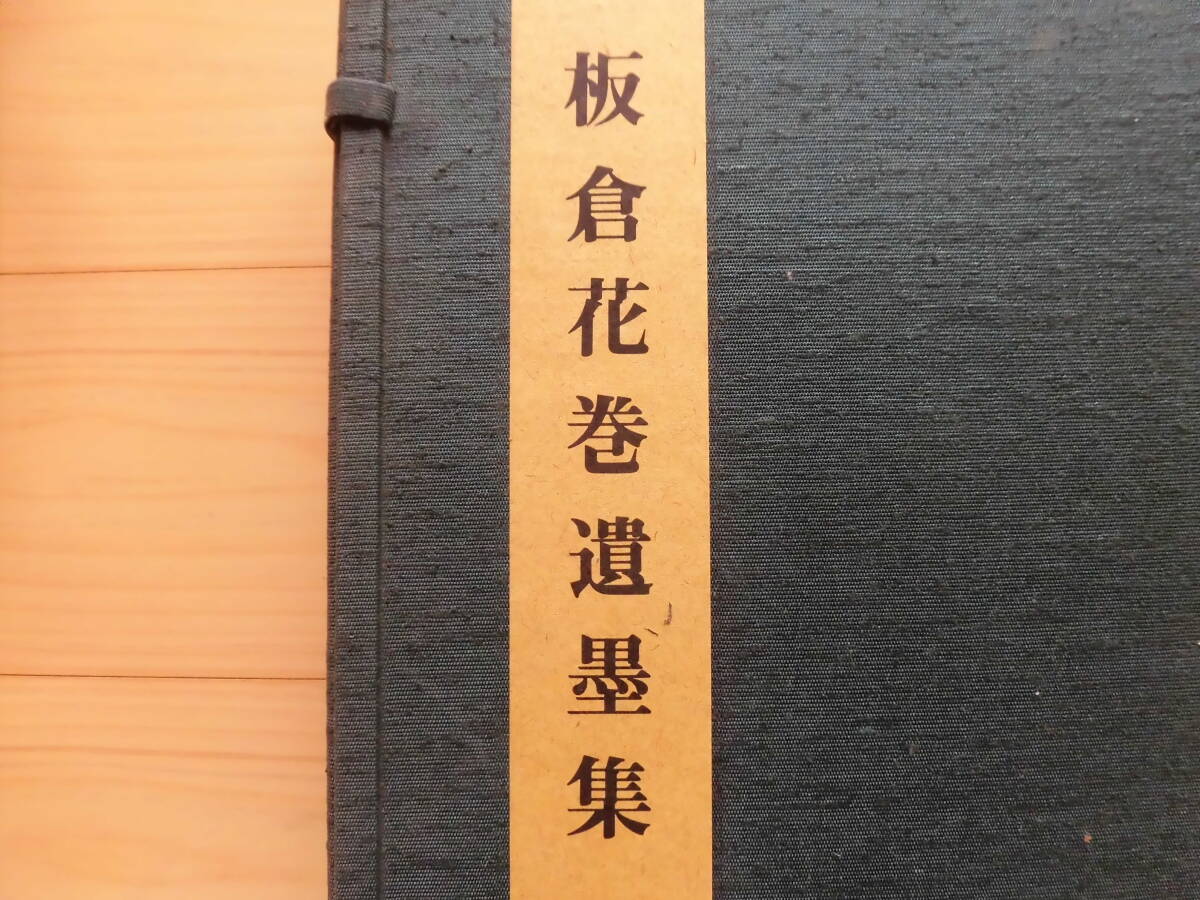 板倉花巻遺墨集